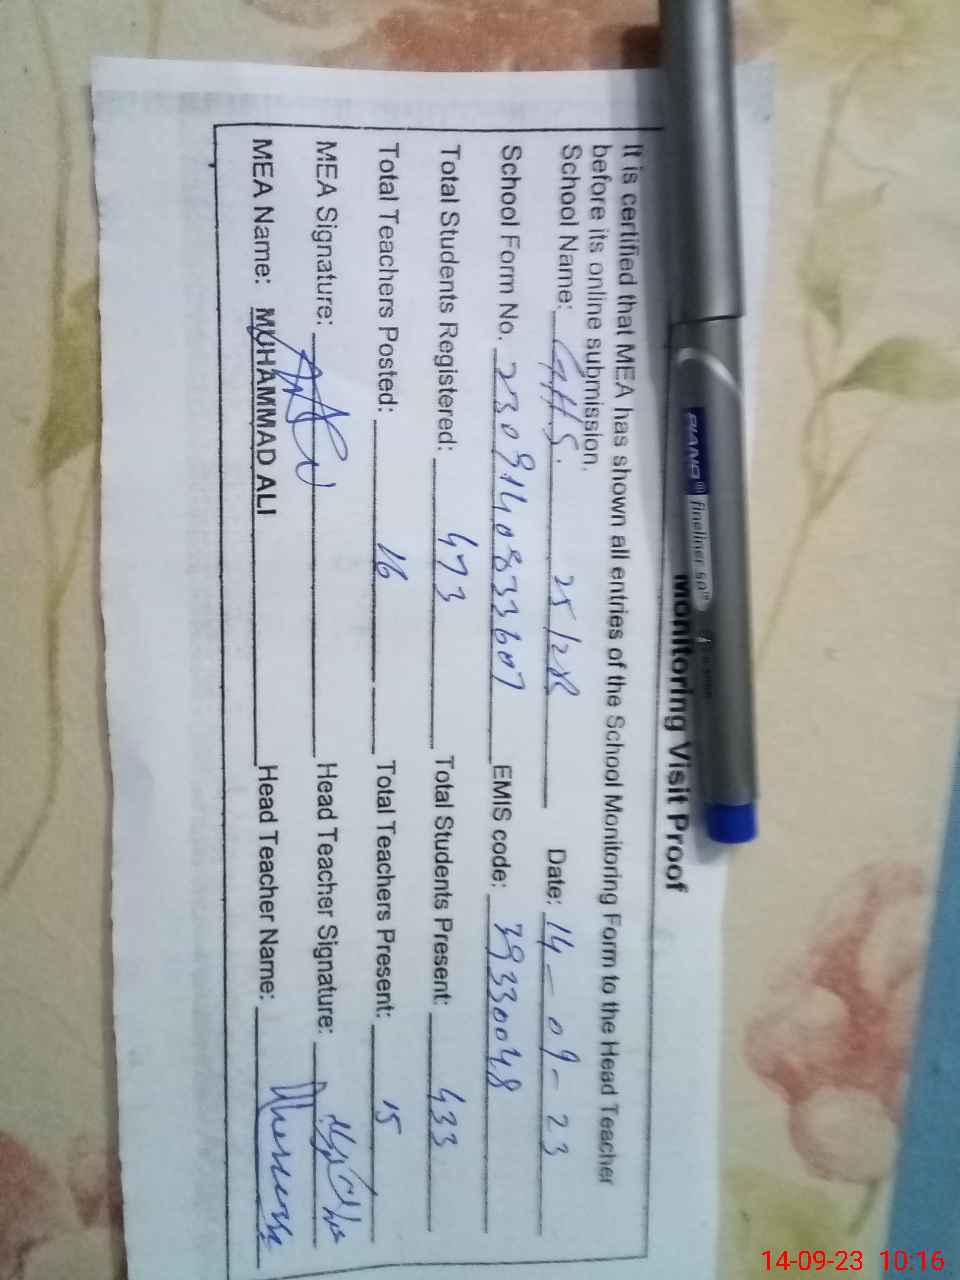 Monitoring Visit Proof
It is certified that MEA has shown all entries of the School Monitoring Form to the Head Teacher
before its online submission.
School Name: GHS. 25/2R Date: 14-09-23
School Form No. 2309140833607 EMIS code: 39330048
Total Students Registered: 473 Total Students Present: 433
Total Teachers Posted: 16 Total Teachers Present: 15
MEA Signature: Head Teacher Signature:
MEA Name: MUHAMMAD ALI Head Teacher Name:
PIANO® fineliner
14-09-23 10:16